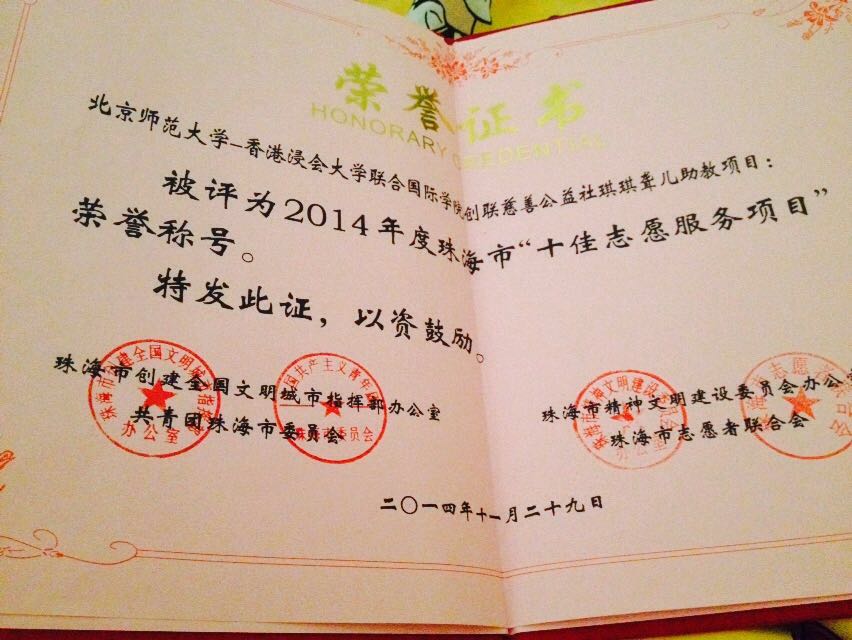 荣誉证书
HONORARY CREDENTIAL
北京师范大学-香港浸会大学联合国际学院创联慈善公益社琪琪聋儿助教项目：
被评为2014年度珠海市“十佳志愿服务项目”
荣誉称号。
特发此证，以资鼓励。
珠海市创建全国文明城市指挥部办公室
共青团珠海市委员会
珠海市精神文明建设委员会办公室
珠海市志愿者联合会
二〇一四年十一月二十九日
办公室